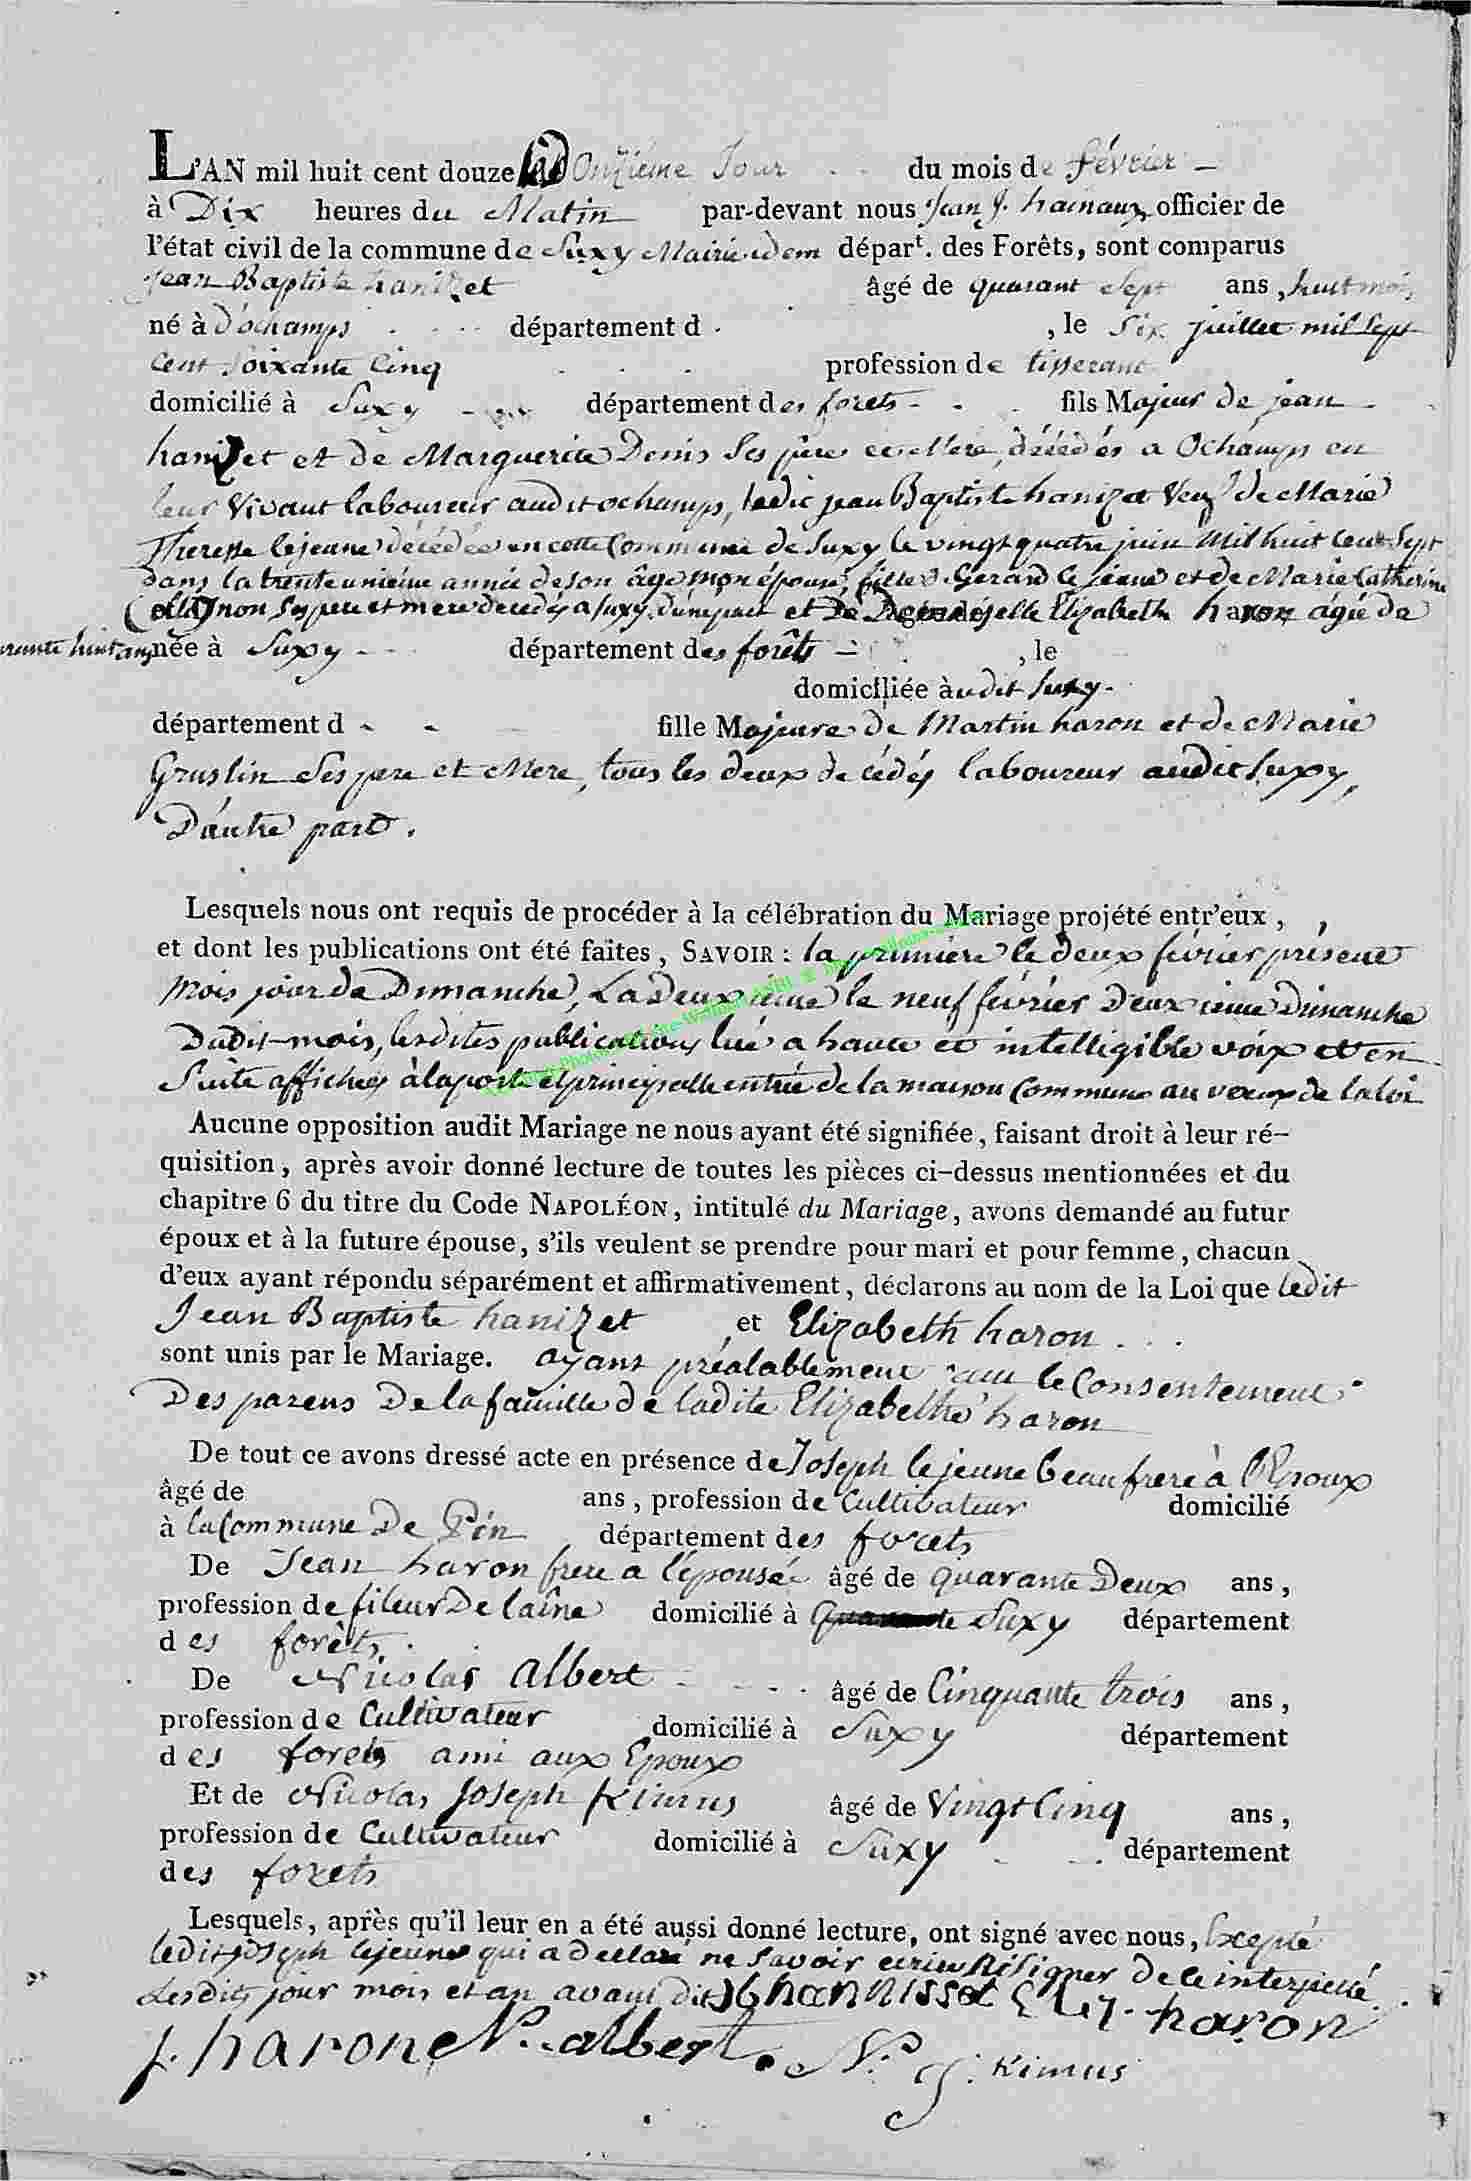 L'AN mil huit cent douze le Onzieme Jour du mois de février
à Dix heures du Matin par-devant nous Jean J. hainaux officier de
l'état civil de la commune de Suxy Mairie idem départ. des Forêts, sont comparus
Jean Baptiste hanizet âgé de quarant Sept ans, huit mois,
né à d'ochamps département d , le Six juillet mil Sept
Cent Soixante Cinq profession de tisserant
domicilié à Suxy département des forets fils Majeur de jean
hanizet et de Marguerite Denis Ses père et Mere, décédés a Ochamps en
leur Vivant laboureur audit ochamps, ledit jean Baptiste hanizet Veuf de Marie
Theresse lejeune décédée en cette Commune de Suxy le vingt quatre juin Mil huit Cent Sept
dans la trente unieme année de son âge mon épouse, fille de Gerard le jeune et de Marie Catherine
non Ses pere et mere decedés a Suxy. d'une part et De Demoiselle Elizabeth haron âgée de
quarante huit ans née à Suxy département des forêts , le
domiciliée à udit Suxy.
département d fille Majeure de Martin haron et de Marie
Gruslin Ses pere et Mere, tous les deux décédés laboureur audit Suxy,
D'autre part.
Lesquels nous ont requis de procéder à la célébration du Mariage projété entr'eux,
et dont les publications ont été faites, SAVOIR : la premiere le deux fevrier présent
Mois jour de Dimanche, La Deuxieme le neuf fevrier Deuxieme Dimanche
Dudit mois, lesdites publications lué a haute et intelligible voix et en
Suite affichés à la porte et principalle entrée de la maison Commune au voeux de la loi
Aucune opposition audit Mariage ne nous ayant été signifiée, faisant droit à leur ré-
quisition, après avoir donné lecture de toutes les pièces ci-dessus mentionnées et du
chapitre 6 du titre du Code NAPOLÉON, intitulé du Mariage, avons demandé au futur
époux et à la future épouse, s'ils veulent se prendre pour mari et pour femme, chacun
d'eux ayant répondu séparément et affirmativement, déclarons au nom de la Loi que ledit
Jean Baptiste hanizet et Elizabeth haron
sont unis par le Mariage. ayant préalablement eu le Consentement
Des parens De la famille de ladite Elizabethe haron
De tout ce avons dressé acte en présence de Joseph lejeune beaufrere à l'Epoux
âgé de ans, profession de Cultivateur domicilié
à la Commune De Pin département des forets
De Jean haron frere a l'épousée âgé de quarante Deux ans,
profession de fileur De laine domicilié à Suxy département
des forêts.
De Nicolas Albert âgé de Cinquante trois ans,
profession de Cultivateur domicilié à Suxy département
des forets ami aux Epoux
Et de Nicolas Joseph Kimus âgé de Vingt Cinq ans,
profession de Cultivateur domicilié à Suxy département
des forets
Lesquels, après qu'il leur en a été aussi donné lecture, ont signé avec nous, Excepté
ledit joseph lejeune qui a declaré ne savoir ecrire Ni Signer De ce interpellé.
Lesdits jour mois et an avant dits jb hannisset Eliz. haron
j. harone N. albert. N. J. Kimus